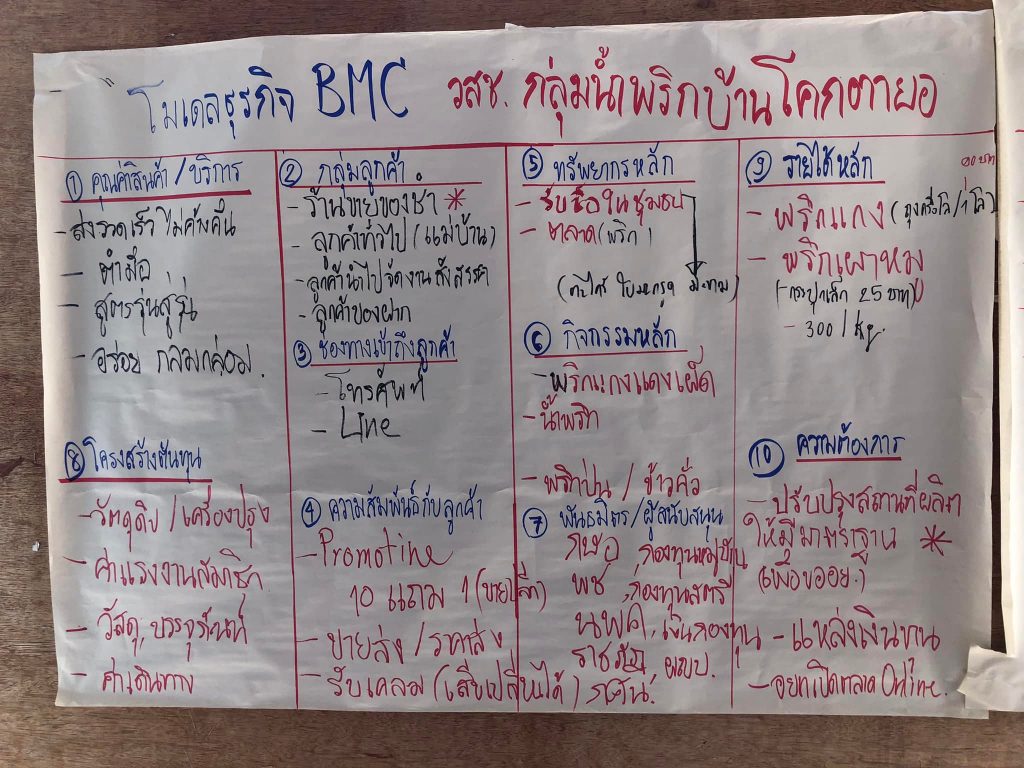 โมเดลธุรกิจ BMC วสช. กลุ่มน้ำพริกบ้านโคกตายอ
① คุณค่าสินค้า / บริการ
- ส่งรวดเร็ว ไม่ค้างคืน
- ตำมือ
- สูตรรุ่นสู่รุ่น
- อร่อย กลมกล่อม.
② กลุ่มลูกค้า
- ร้านขายของชำ *
- ลูกค้าทั่วไป (แม่บ้าน)
- ลูกค้านำไปจัดงานสังสรรค์
- ลูกค้าของฝาก
③ ช่องทางเข้าถึงลูกค้า
- โทรศัพท์
- Line
④ ความสัมพันธ์กับลูกค้า
- Promotine
10 แถม 1 (ขายปลีก)
- ขายส่ง / ราคาส่ง
- รับเคลม (เสียเปลี่ยนได้) รสคืน.
⑤ ทรัพยากรหลัก
- รับซื้อในชุมชน
- ตลาด (พริก)
(ตะไคร้ ใบมะกรูด มะขาม)
⑥ กิจกรรมหลัก
- พริกแกงแดงเผ็ด
- น้ำพริก
- พริกป่น / ข้าวคั่ว
⑦ พันธมิตร / ผู้สนับสนุน
กษอ, กองทุนหมู่บ้าน
พช, กองทุนสตรี
นพค, เงินกองทุน
ราชภัฏ, ผญบ.
⑧ โครงสร้างต้นทุน
- วัตถุดิบ / เครื่องปรุง
- ค่าแรงงานสมาชิก
- วัสดุ, บรรจุภัณฑ์
- ค่าเดินทาง
⑨ รายได้หลัก
- พริกแกง (ถุงครึ่งโล / 1 โล)
- พริกเผาหอม
(- กระปุกเล็ก 25 บาท)
- 300 / kg.
⑩ ความต้องการ
- ปรับปรุงสถานที่ผลิต
ให้มีมาตรฐาน *
(เพื่อขออย.)
- แหล่งเงินทุน
- อยากเปิดตลาด Online.